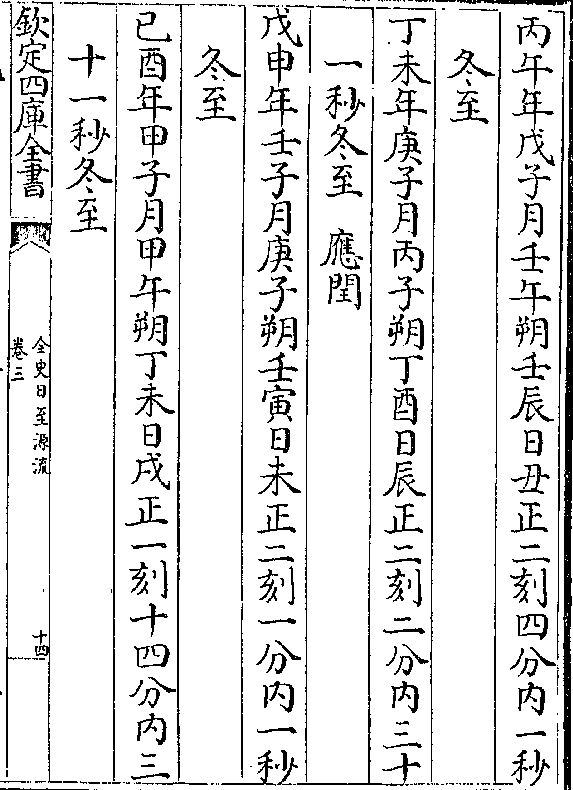 丙午年戊子月壬午朔壬辰日丑正二刻四分内一秒
冬至
丁未年庚子月丙子朔丁酉日辰正二刻二分内三十
一秒冬至　應閏
戊申年壬子月庚子朔壬寅日未正二刻一分内一秒
冬至
已酉年甲子月甲午朔丁未日戌正一刻十四分内三
十一秒冬至
欽定四庫全書
全史日至源流
卷三
十四